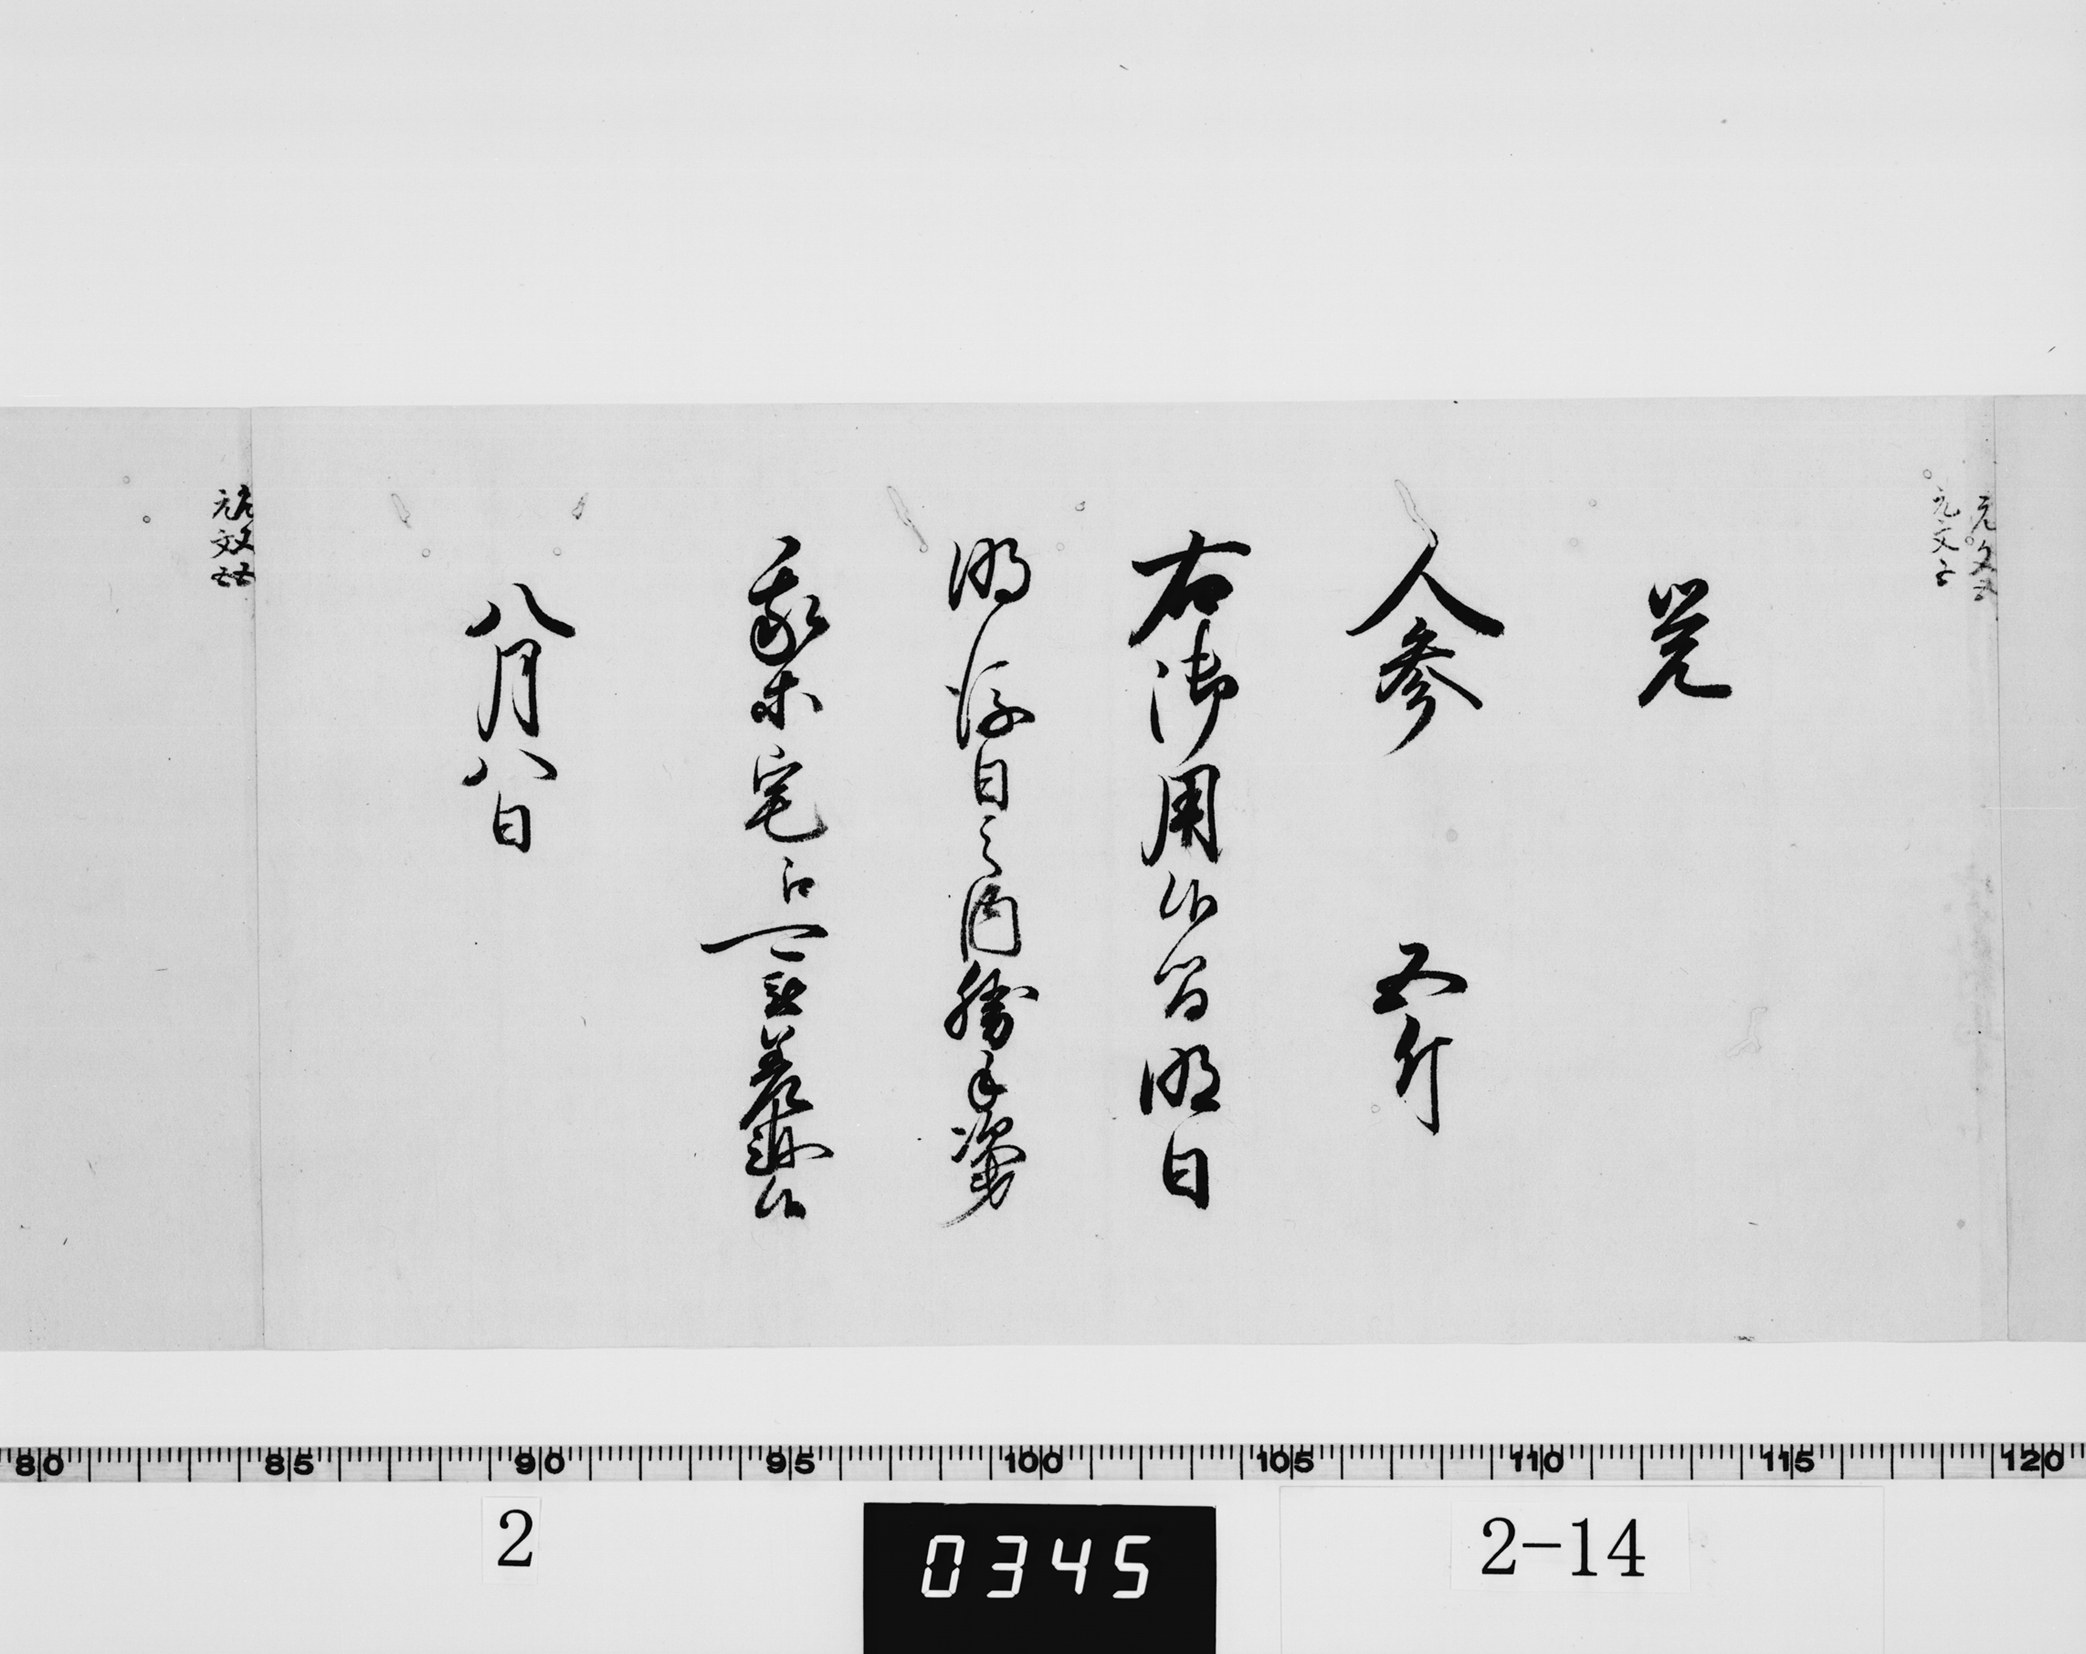 元文五
元文五
覚
人参　五斤
右御用候間明日
明後日之内勝手次第
我等宅江可被差越候
八月八日
元文五
元文五
80 85 90 95 100 105 110 115 120
2
0345
2-14